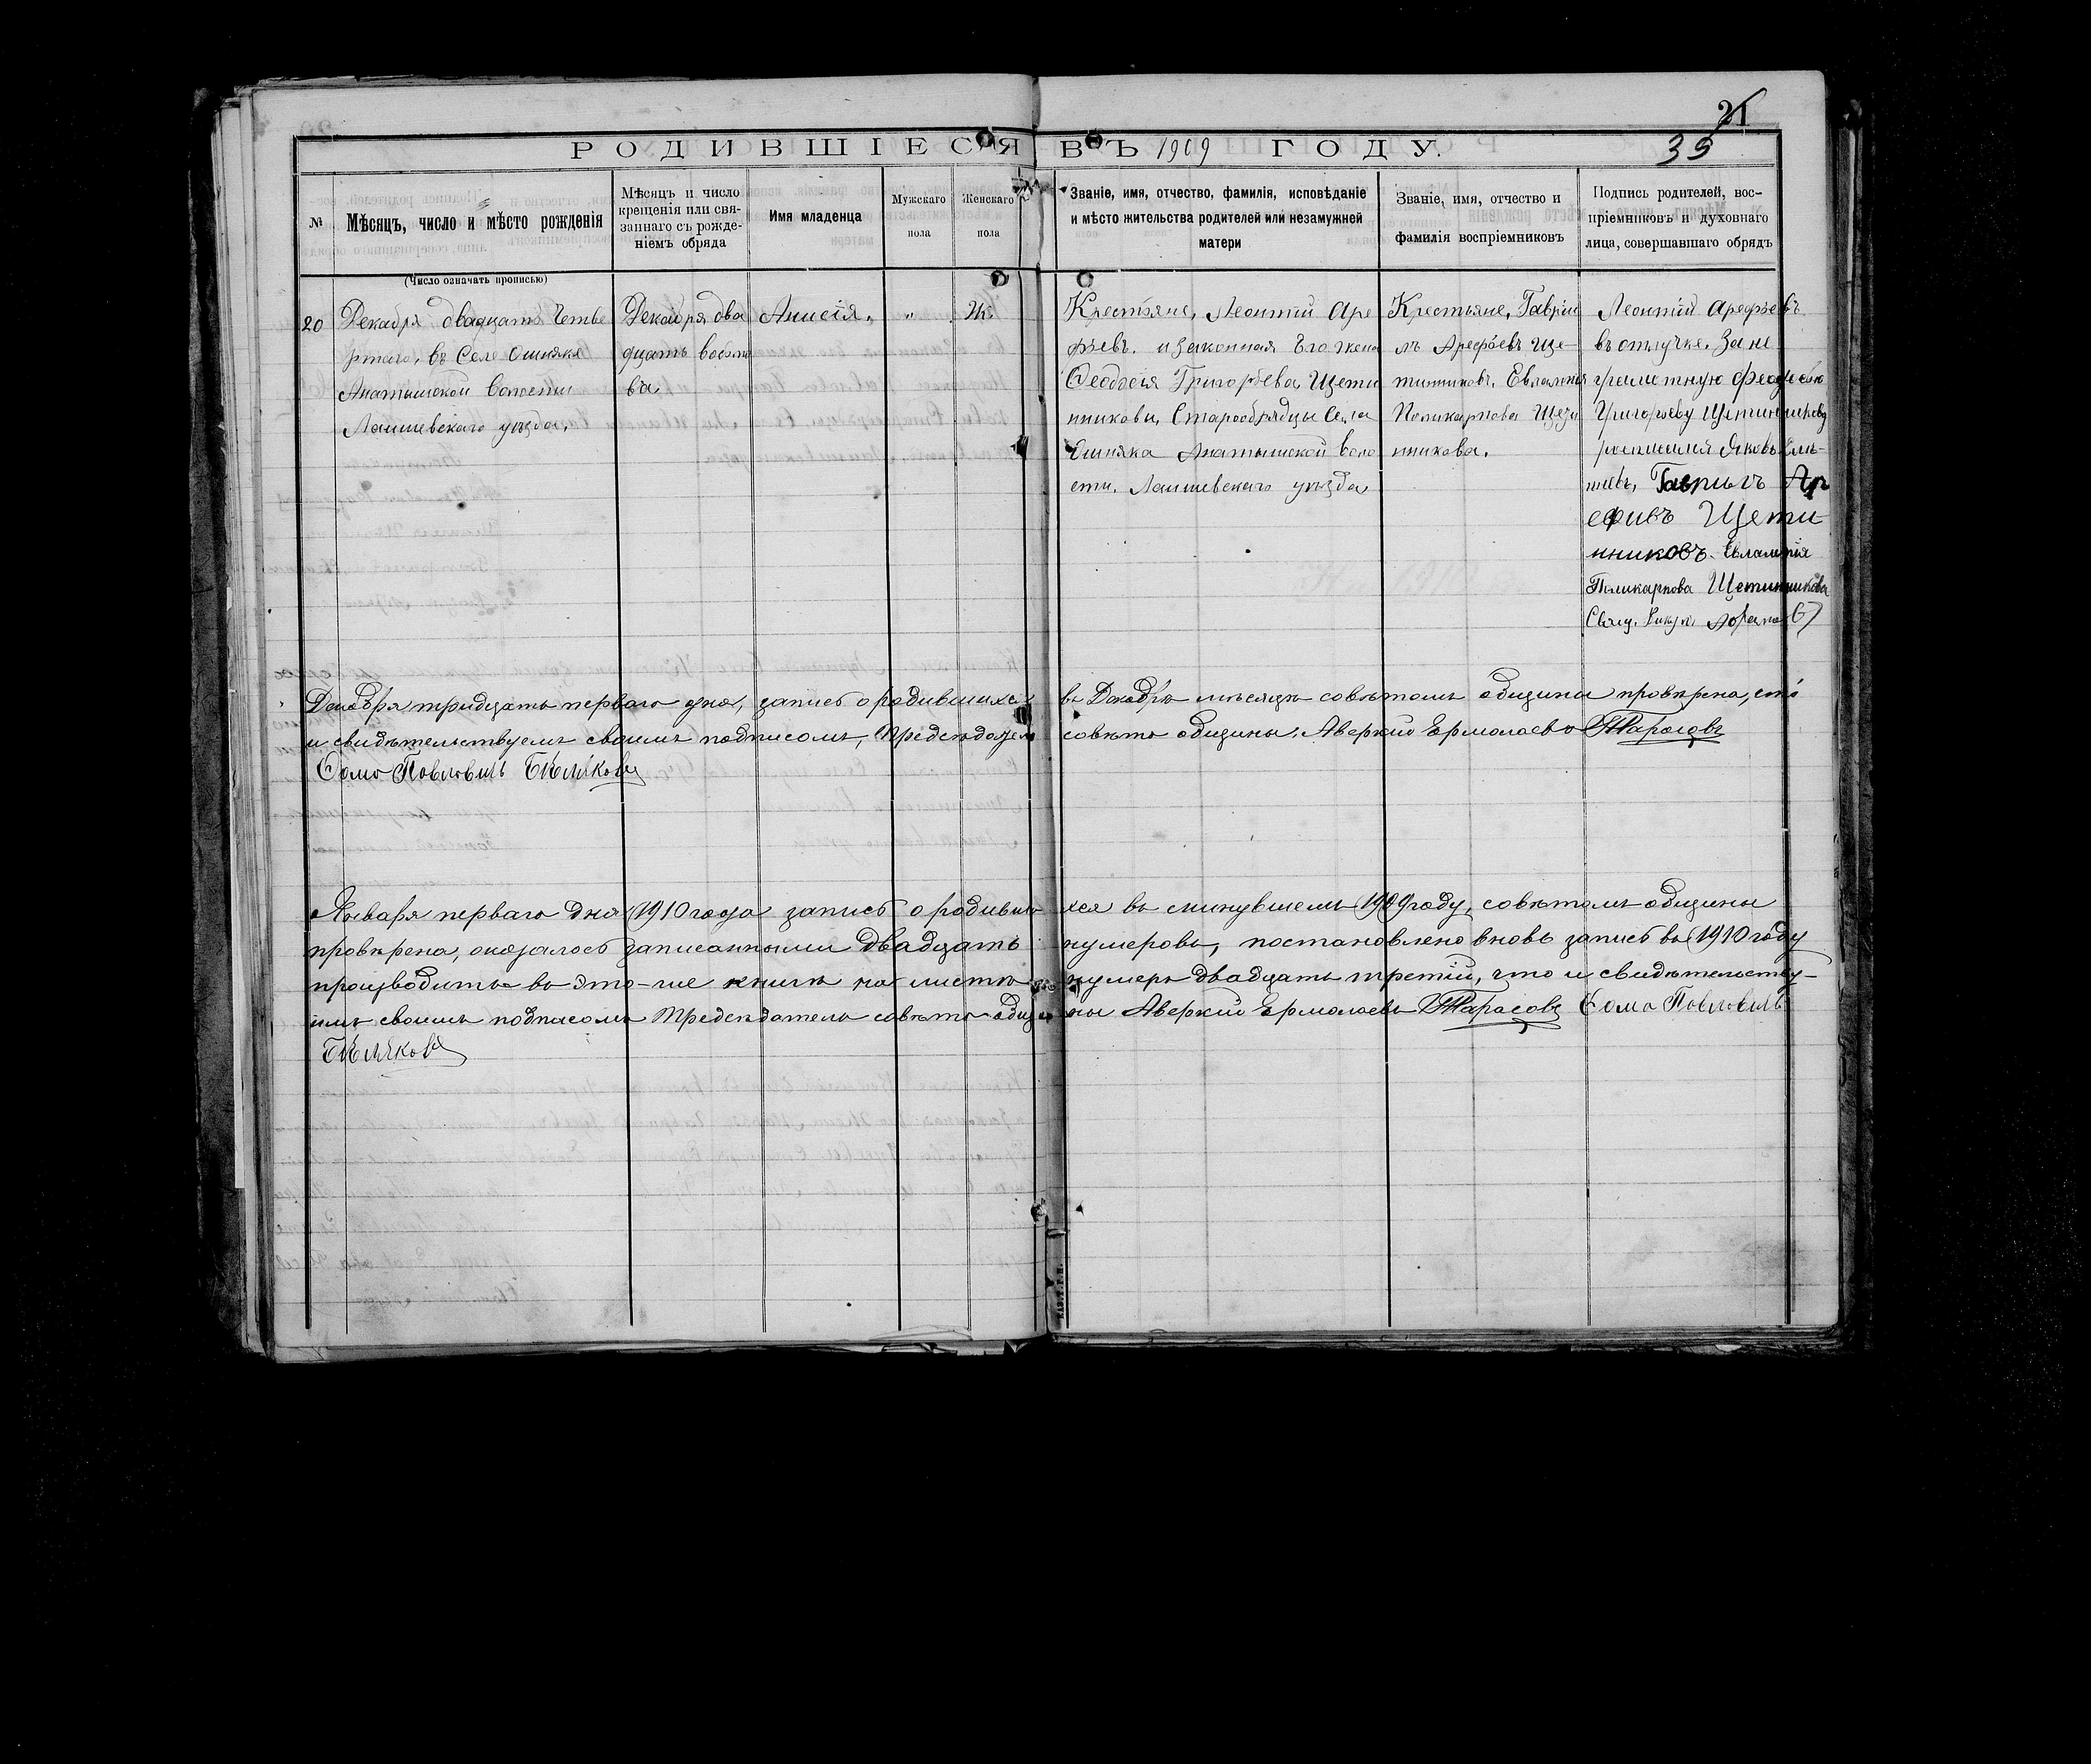 21
35
РОДИВШІЕСЯ ВЪ 1909 ГОДУ.
№
Мѣсяцъ, число и мѣсто рожденія
Мѣсяцъ и число
крещенія или свя-
заннаго съ рожде-
ніемъ обряда
Имя младенца
Мужскаго
пола
Женскаго
пола
Званіе, имя, отчество, фамилія, исповѣданіе
и мѣсто жительства родителей или незамужней
матери
Званіе, имя, отчество и
фамилія воспріемниковъ
Подпись родителей, вос-
пріемниковъ и духовнаго
лица, совершавшаго обрядъ
(Число означать прописью)
20
Декабря двадцать Четве
ртаго, въ Селе Ошняке
Анатышской волости
Лаишевскаго уѣзда,
Декабря два
дцать восьмо
ва
Анисія.
"
Ж
Крестьяне, Леонтій Аре
фьевъ. и законная Его жена
Феодосія Григорьева Щети
нникови, Старообрядцы Села
Ошняка Анатышской воло
сти. Лаишевскаго уѣзда
Крестьяне, Гаврiи
лъ Арефьевъ Ще-
тинниковъ, Евлампия
Поликарпова Щети
нникова.
Леонтій Арефьевъ
въ отлучке. За не
грамотную Феодосію
Григорьеву Щетинникову
росписился Яковъ
Гаврилъ Ар
ефивъ Щети
нниковъ. Евлампія
Поликарпова Щетинникова
Свящ.
Декабря тридцать перваго дня, запись о родившихся въ Декабрѣ мѣсяцѣ совѣтомъ общины провѣрена, что
и свидѣтельствуемъ своимъ подписомъ, Председатель совѣта общины, Аверкий Ермолаевъ Тарасовъ
Фома Повловичь Бѣляковъ
Января перваго дня 1910 года запись о родивши- хся въ минувшемъ 1909 году, совѣтомъ общины
провѣрена, оказалось записанными двадцать нумеровъ, постановлено вновь запись въ 1910 году
производить въ это-же книгѣ на листѣ нумеръ двадцать третій, что и свидѣтельству-
имъ своимъ подписомъ Предсѣдатель совѣта общи ны Аверкий Ермолаевъ Тарасовъ Фома Повловичь
Бѣляковъ